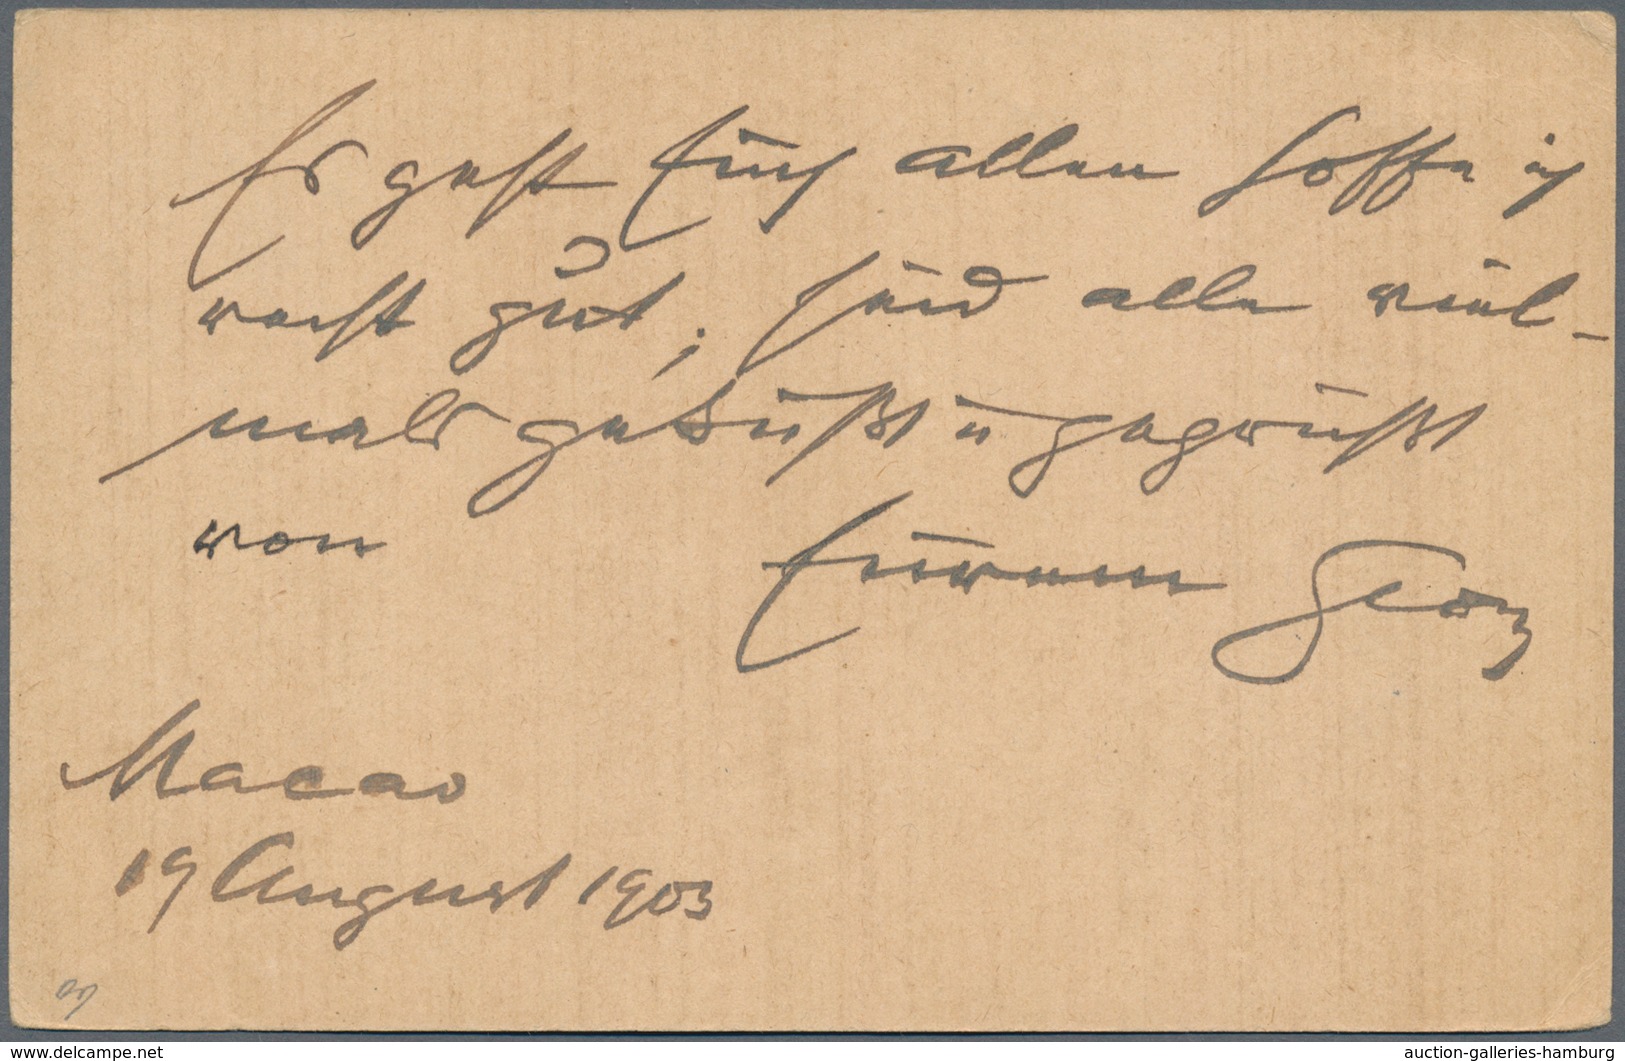 Es geht Euch allen hoffe ich
recht gut, seid alle viel-
mals geküßt u gegrüßt
von Eurem Georg
Macao
19 August 1903
www.delcampe.net
auction-galleries-hamburg